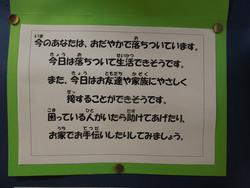 今のあなたは、おだやかで落ちついています。
今日は落ちついて生活できそうです。
また、今日はお友達や家族にやさしく
接することができそうです。
困っている人がいたら助けてあげたり、
お家でお手伝いしたりしてみましょう。